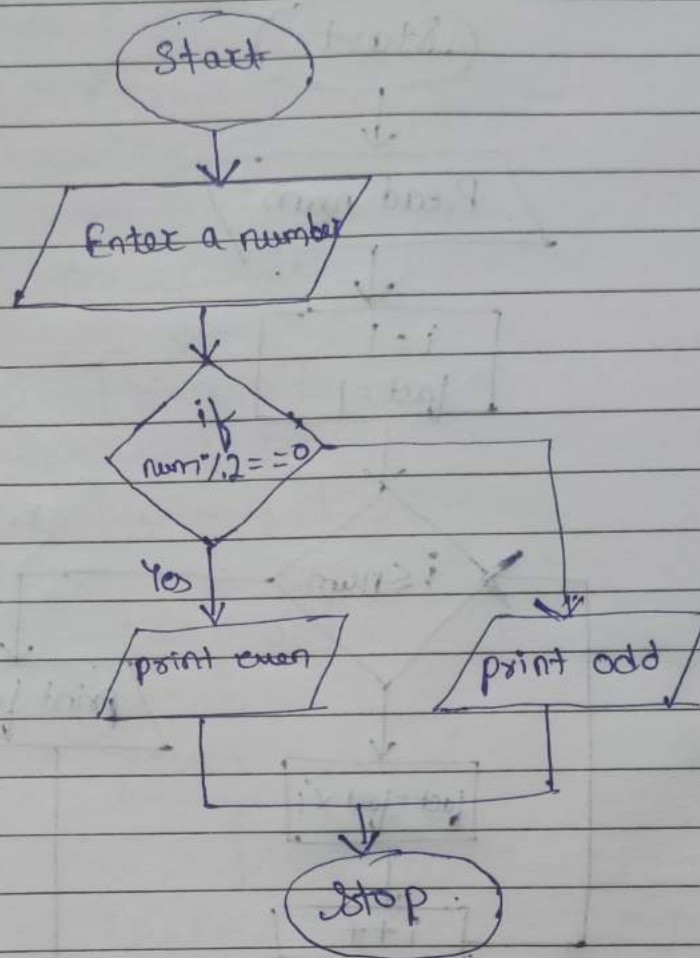 Start
Enter a number
if
num%2==0
Yes
print even
print odd
Stop